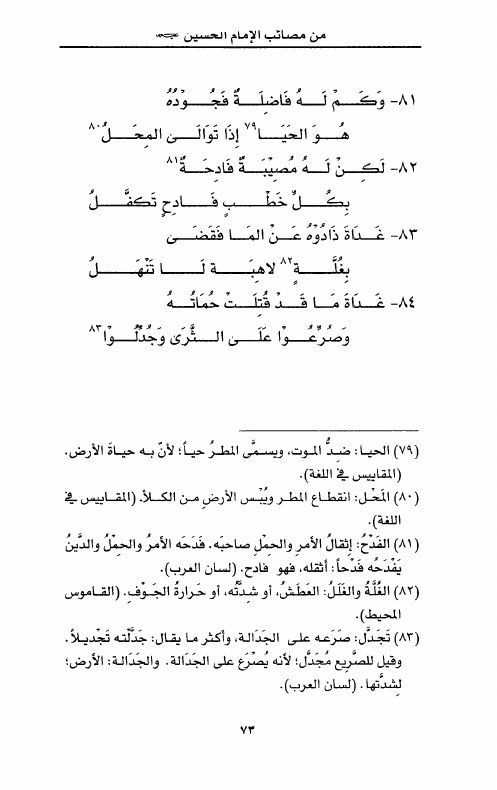 من مصائب الإمام الحسين
٨١- وَكَـمْ لَـهُ فَاضِلَـةٌ فَجُـوْدُهُ
هُـوَ الحَيَـا٧٩ إِذَا تَوَالَـى المِحَـلُ٨٠
٨٢- لَكِـنْ لَـهُ مُصِيْبَـةٌ فَادِحَـةٌ٨١
بِكُـلِّ خَطْـبٍ فَـادِحٍ تَكفَّـلُ
٨٣- غَـدَاةَ ذَادُوْهُ عَـنْ المَـا فَقَضَـى
بِغُلَّـةٍ٨٢ لاهِبَـة لَـا تَنْهَـلُ
٨٤- غَـدَاةَ مَـا قَـدْ قُتِلَـتْ حُمَاتُـهُ
وَصُرِّعُـوْا عَلَـى الـثَّرَى وَجُدِّلُـوْا٨٣
(٧٩) الحيـا: ضدُّ المـوت، ويسمَّى المطـرُ حيـاً؛ لأنّ بـه حيـاةَ الأرض.
(المقاييس في اللغة).
(٨٠) المَحْـل: انقطـاع المطـر ويُبْـس الأرضِ مـن الكـلأ. (المقـاييس في
اللغة).
(٨١) الفَدْحُ: إثقالُ الأمرِ والحِمْلِ صاحبَه. فَدَحَه الأمرُ والحِمْلُ والدَّينُ
يَفْدَحُه فَدْحاً: أثقله، فهو فادح. (لسان العرب).
(٨٢) الغُلَّةُ والغَلَلُ: العَطَشُ، أو شِدَّتُه، أو حَرارةُ الجَـوْفِ. (القـاموس
المحيط).
(٨٣) تَجَدَّل: صَرَعه علـى الجَدَالـة، وأكثر ما يقال: جَدَّلْته تَجْديـلاً.
وقيل للصَّريع مُجَدَّل؛ لأنه يُصْرَع على الجَدَالة. والجَدَالـة: الأرض؛
لشدَّتها. (لسان العرب).
٧٣